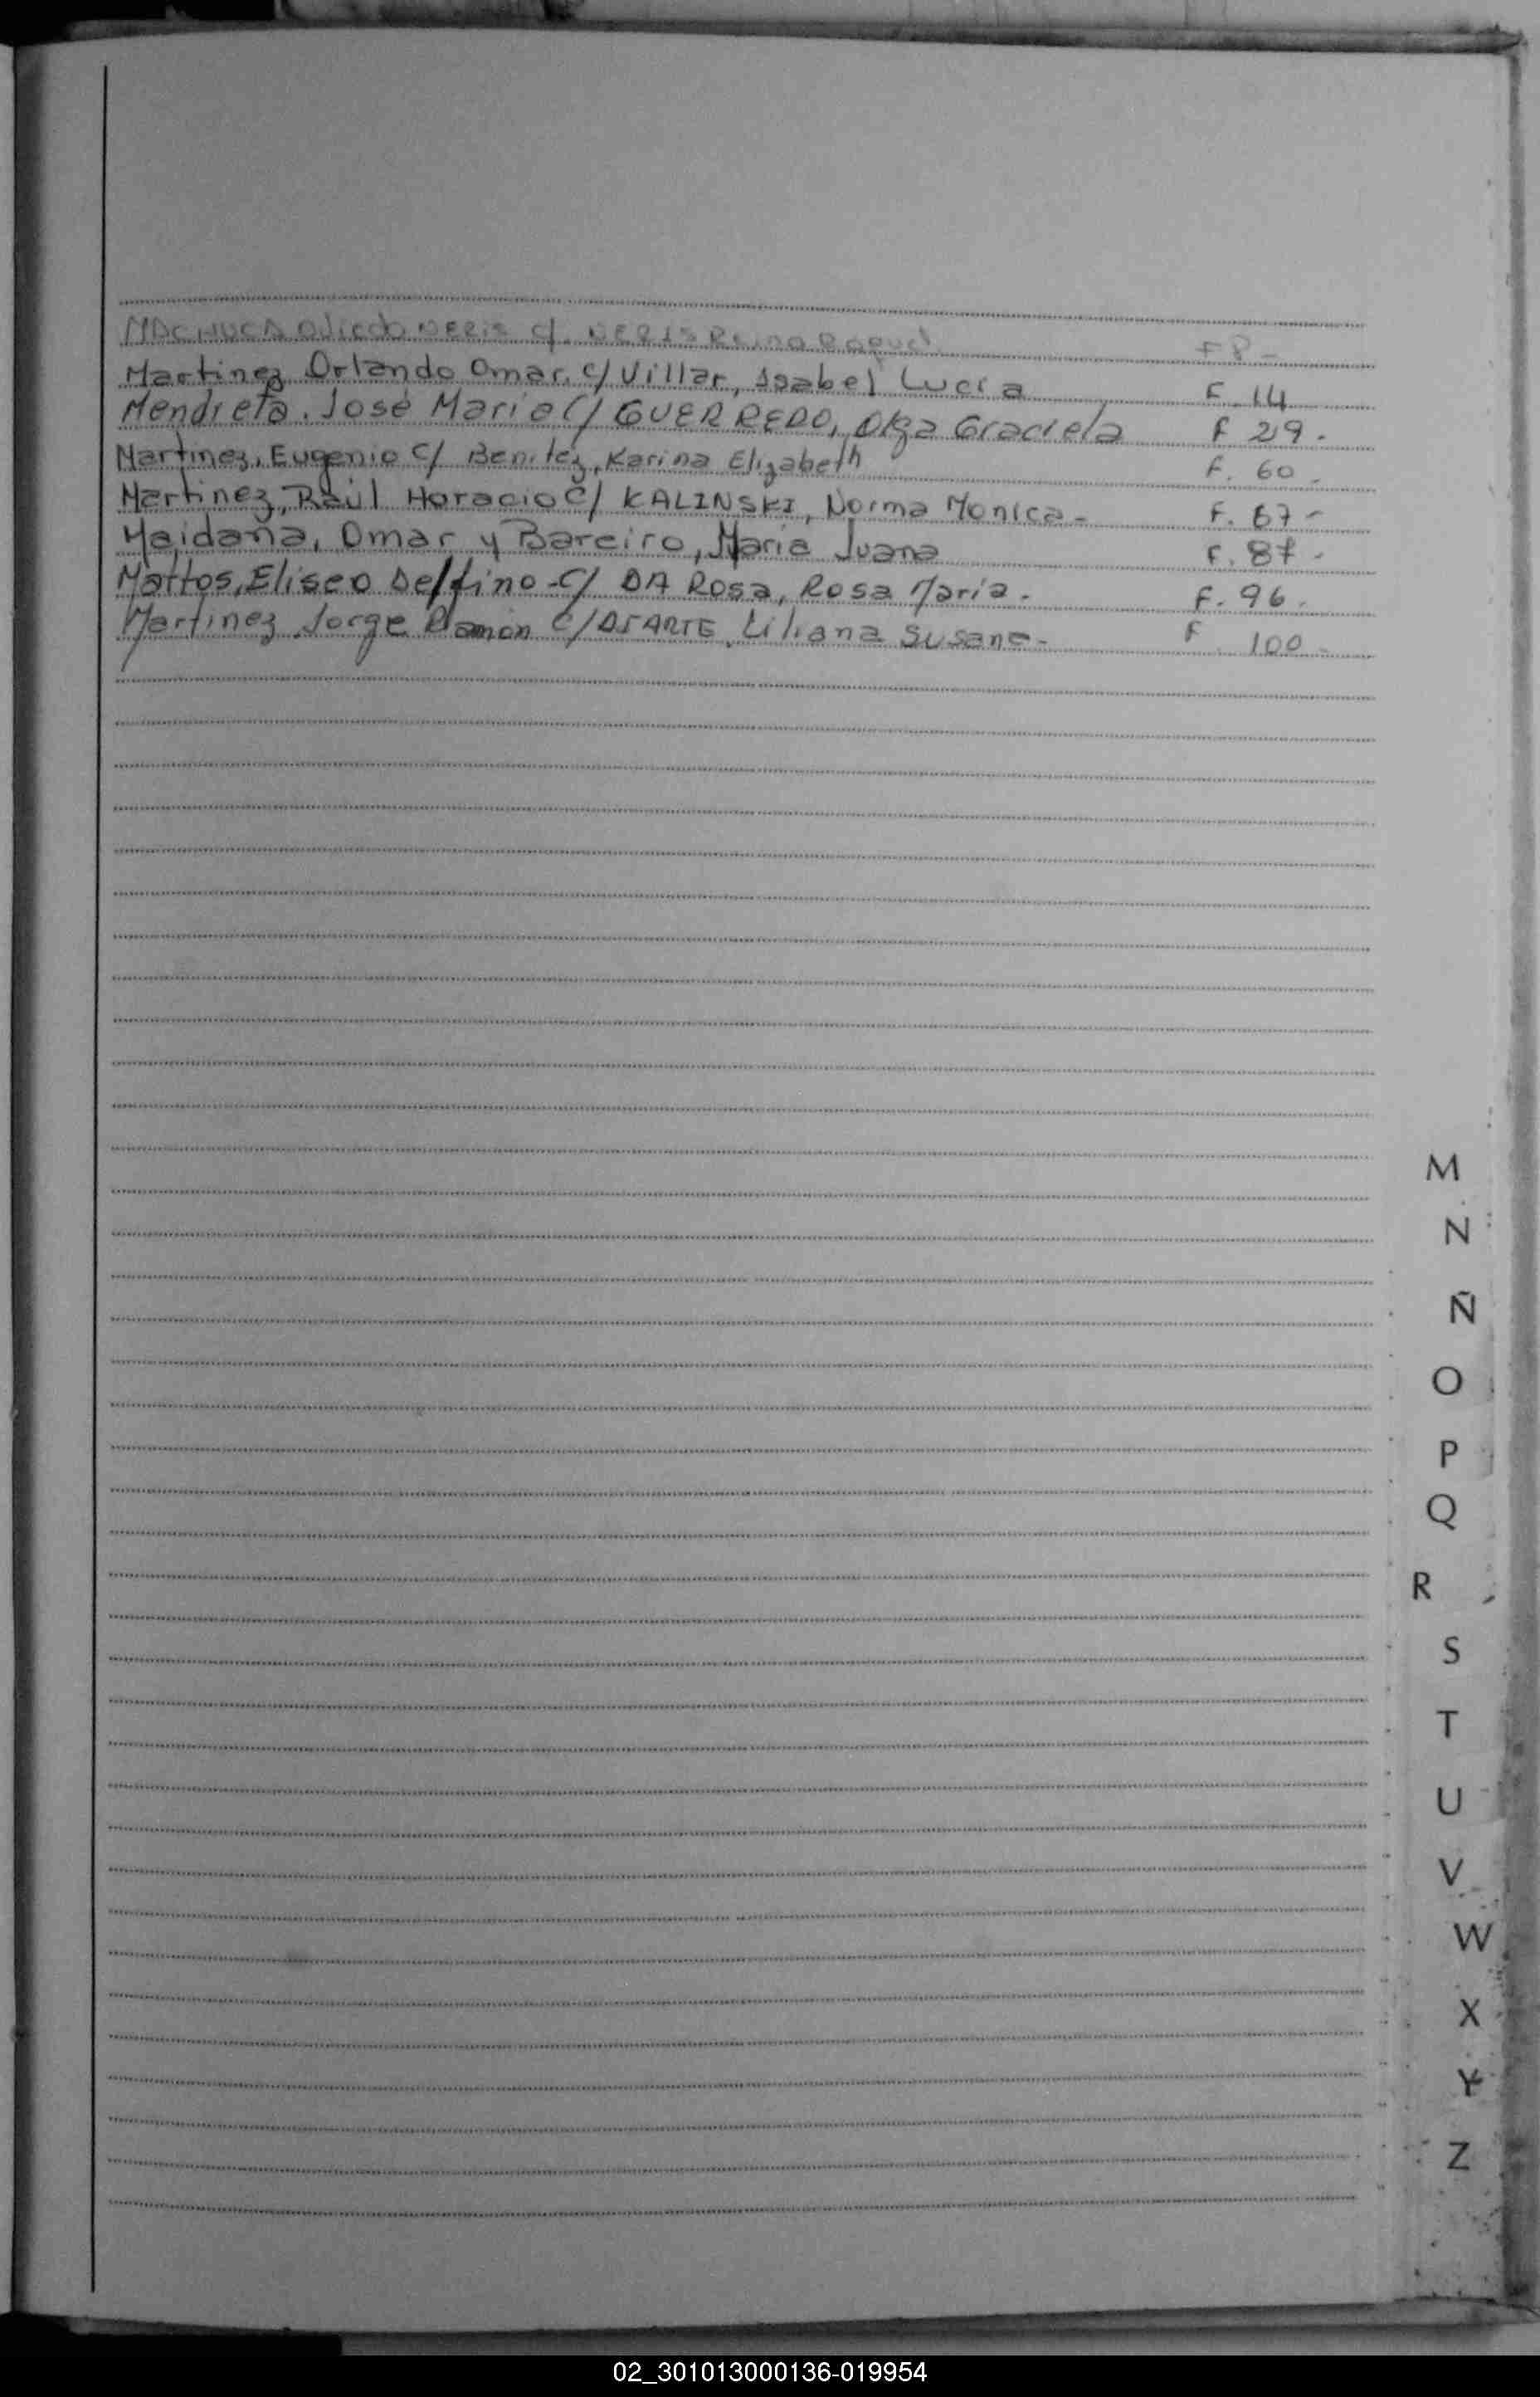 MACHUCA Oviedo NERIS c/. NERIS Reina Raquel F 8 -
Martinez Orlando Omar. c/ Villar, Isabel Lucia F. 14
Mendieta. José Mario C/ GUERREDO, Olga Graciela F 29.
Martinez, Eugenio C/ Benitez, Karina Elizabeth F. 60.
Martinez, Raúl Horacio C/ KALINSKI, Norma Monica - F. 67 -
Maidana, Omar y Bareiro, Maria Juana F. 87.
Mattos, Eliseo Delfino - C/ DA Rosa, Rosa Maria. F. 96.
Martinez Jorge Ramon C/ Liliana Susana - F. 100
M
N
Ñ
O
P
Q
R
S
T
U
V
W
X
Y
Z
02_301013000136-019954